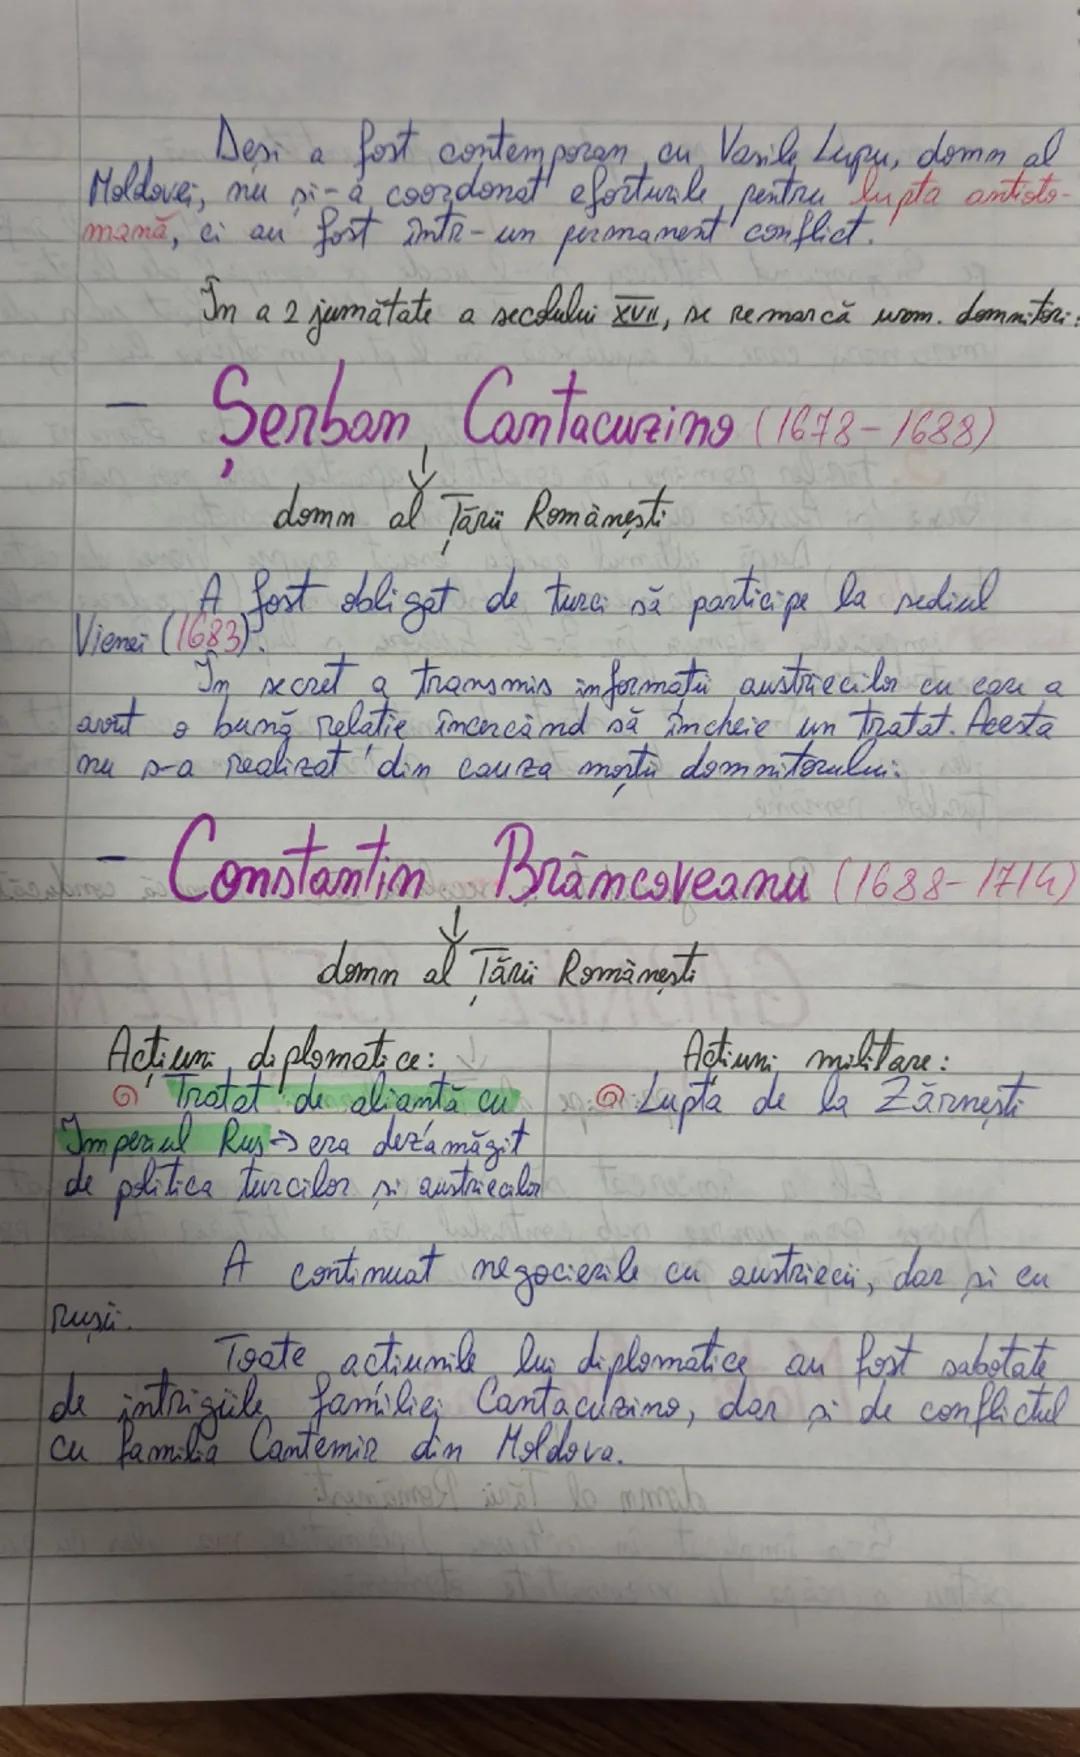 Deși a fost contemporan cu Vasile Lupu, domn al
Moldovei, nu și-a coordonat eforturile pentru lupta antioto-
mană, ci au fost într-un permanent conflict.
În a 2 jumătate a secolului XVII, se remarcă urm. domnitori:
- Șerban Cantacuzino (1678-1688)
↓
domn al Țării Românești
A fost obligat de turci să participe la sediul
Vienei (1683).
În secret a transmis informații austriecilor cu care a
avut o bună relație încercând să încheie un tratat. Acesta
nu s-a realizat din cauza morții domnitorului.
- Constantin Brâncoveanu (1688-1714)
↓
domn al Țării Românești
Acțiuni diplomatice:
Tratat de alianță cu
Imperiul Rus → era dezamăgit
de politica turcilor și austriecilor
Acțiuni militare:
Lupta de la Zărnești
A continuat negocierile cu austriecii, dar și cu
rușii.
Toate acțiunile lui diplomatice au fost sabotate
de intrigiile familiei Cantacuzino, dar și de conflictul
cu familia Cantemir din Moldova.